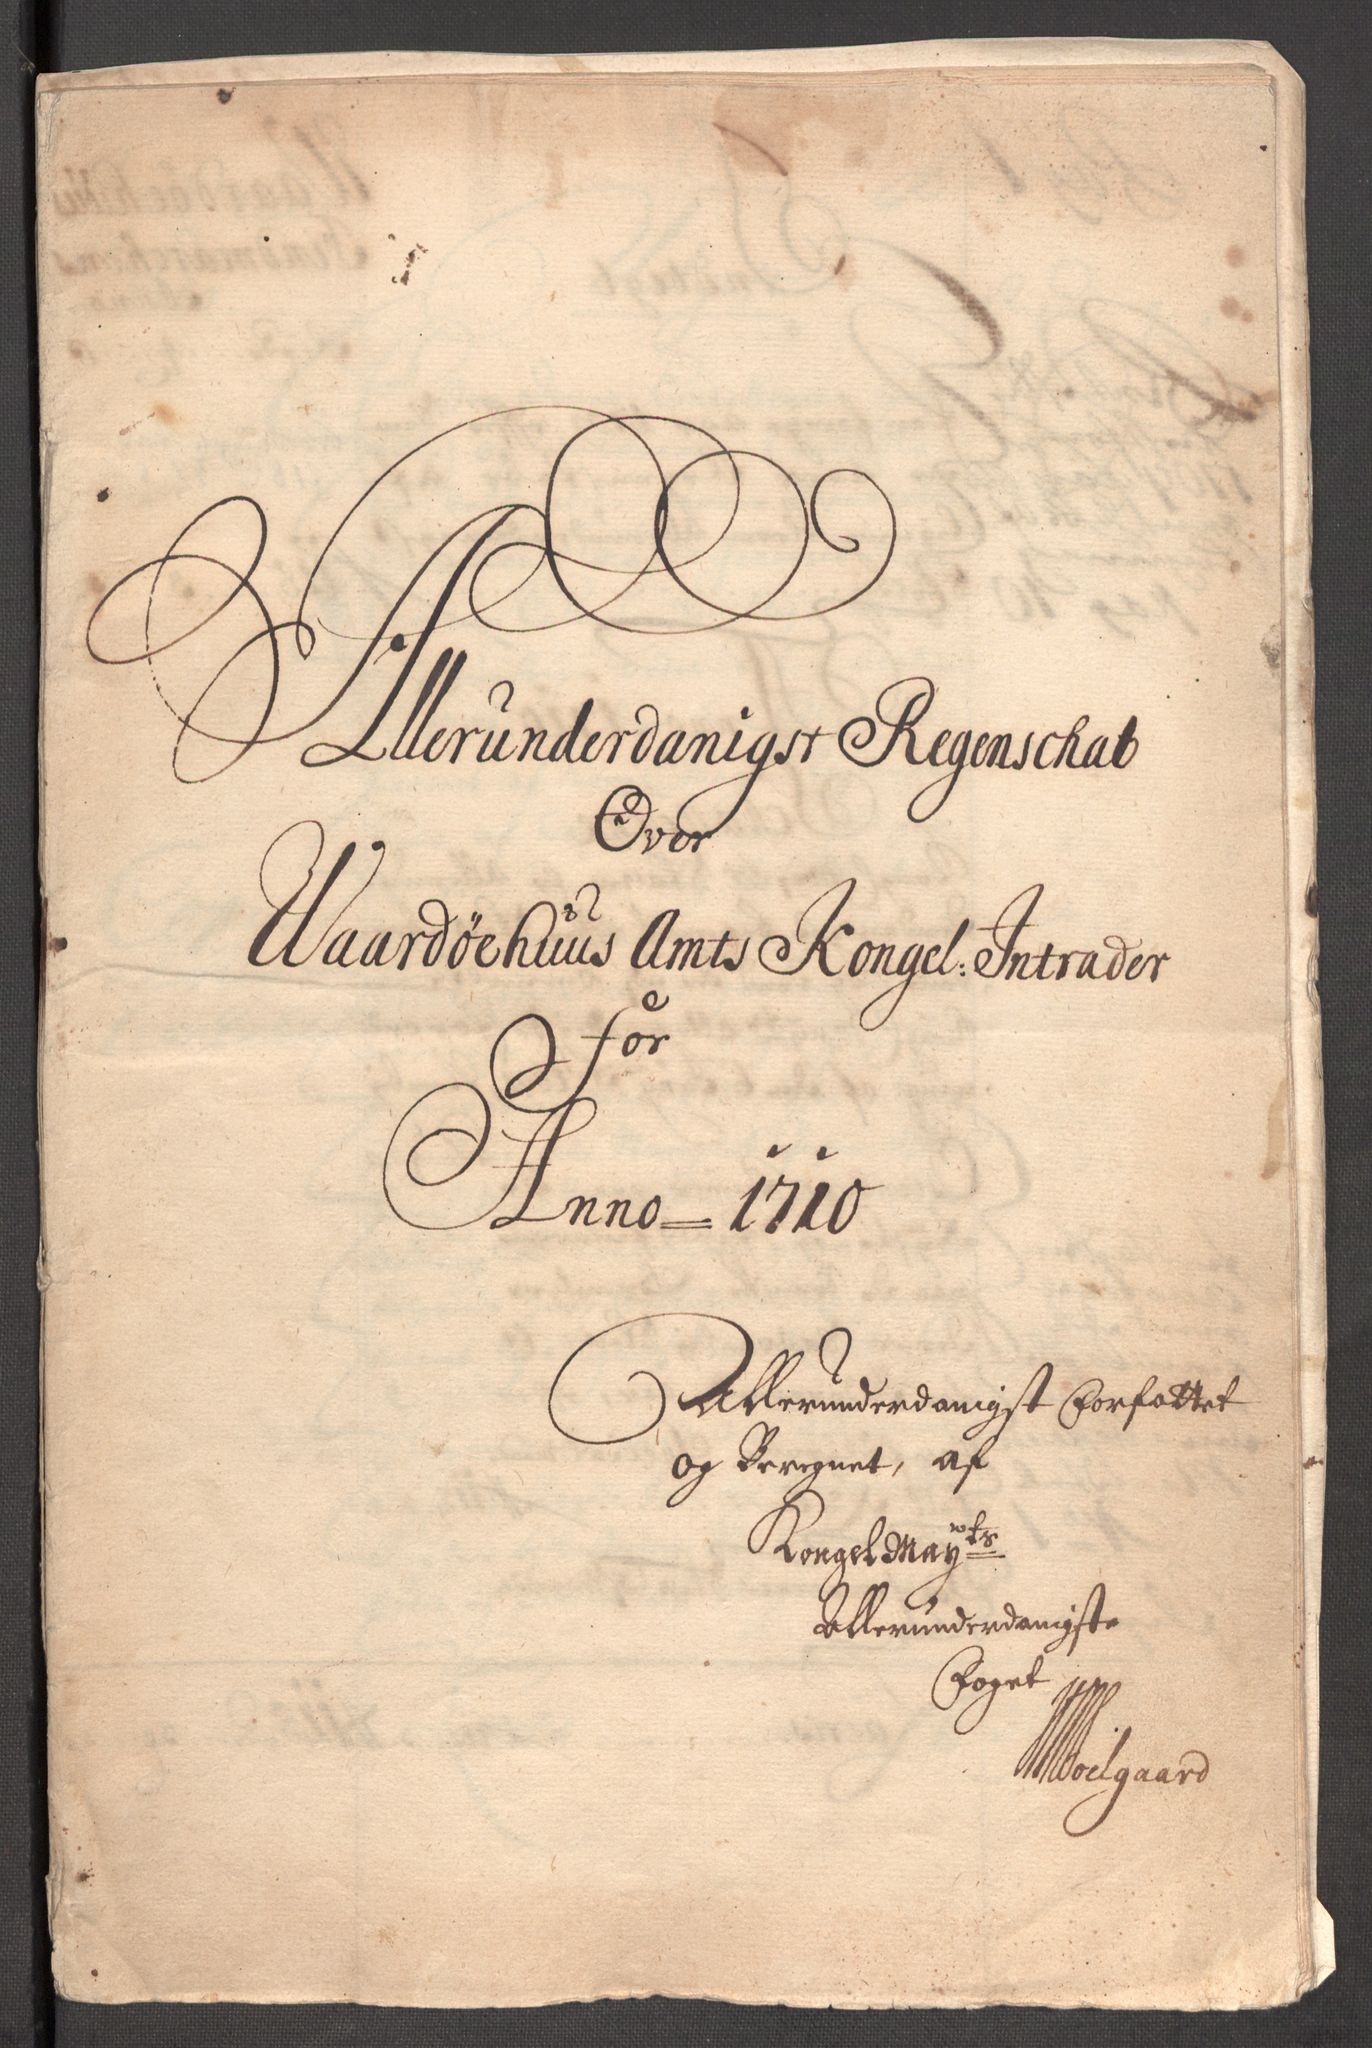 Allerunderdanigst Regenschab
Over
Waardöehuus Amts Kongel: Intrader
for
Anno = 1710
Allerunderdanigst forfattet
og Beregnet, af
Kongel Mayts
Allerunderdanigste
foget